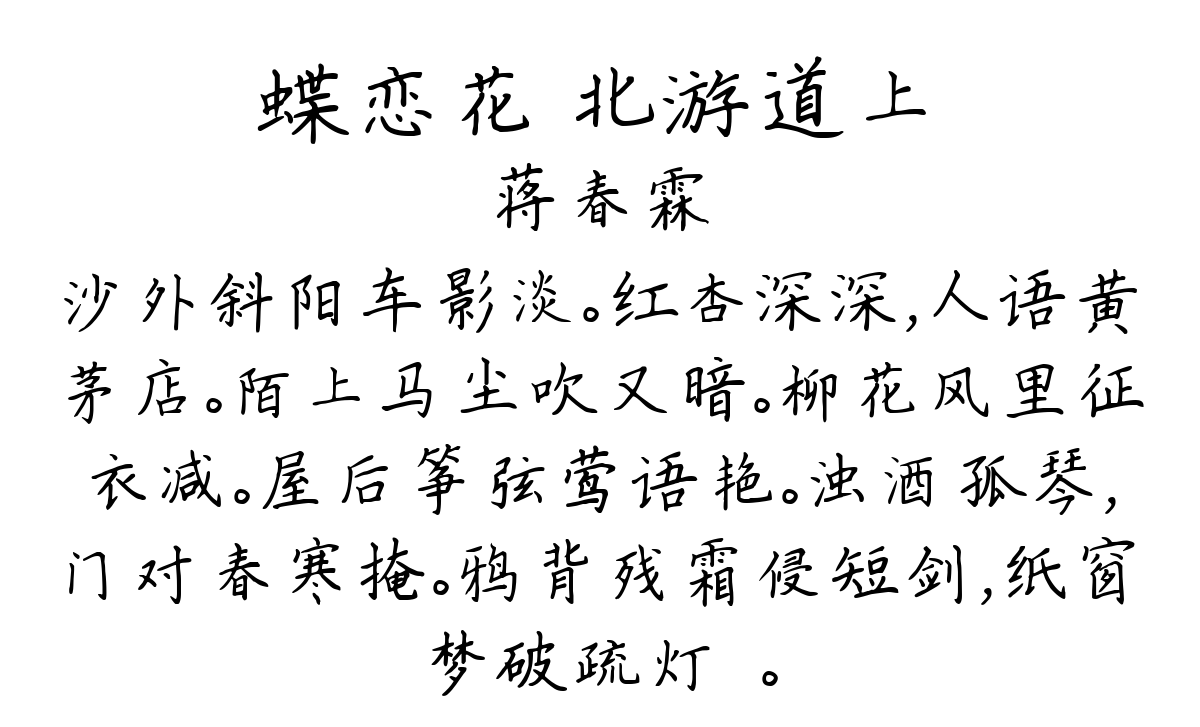 蝶恋花 北游道上
蒋春霖
沙外斜阳车影淡。红杏深深,人语黄
茅店。陌上马尘吹又暗。柳花风里征
衣减。屋后筝弦莺语艳。浊酒孤琴,
门对春寒掩。鸦背残霜侵短剑,纸窗
梦破疏灯 。